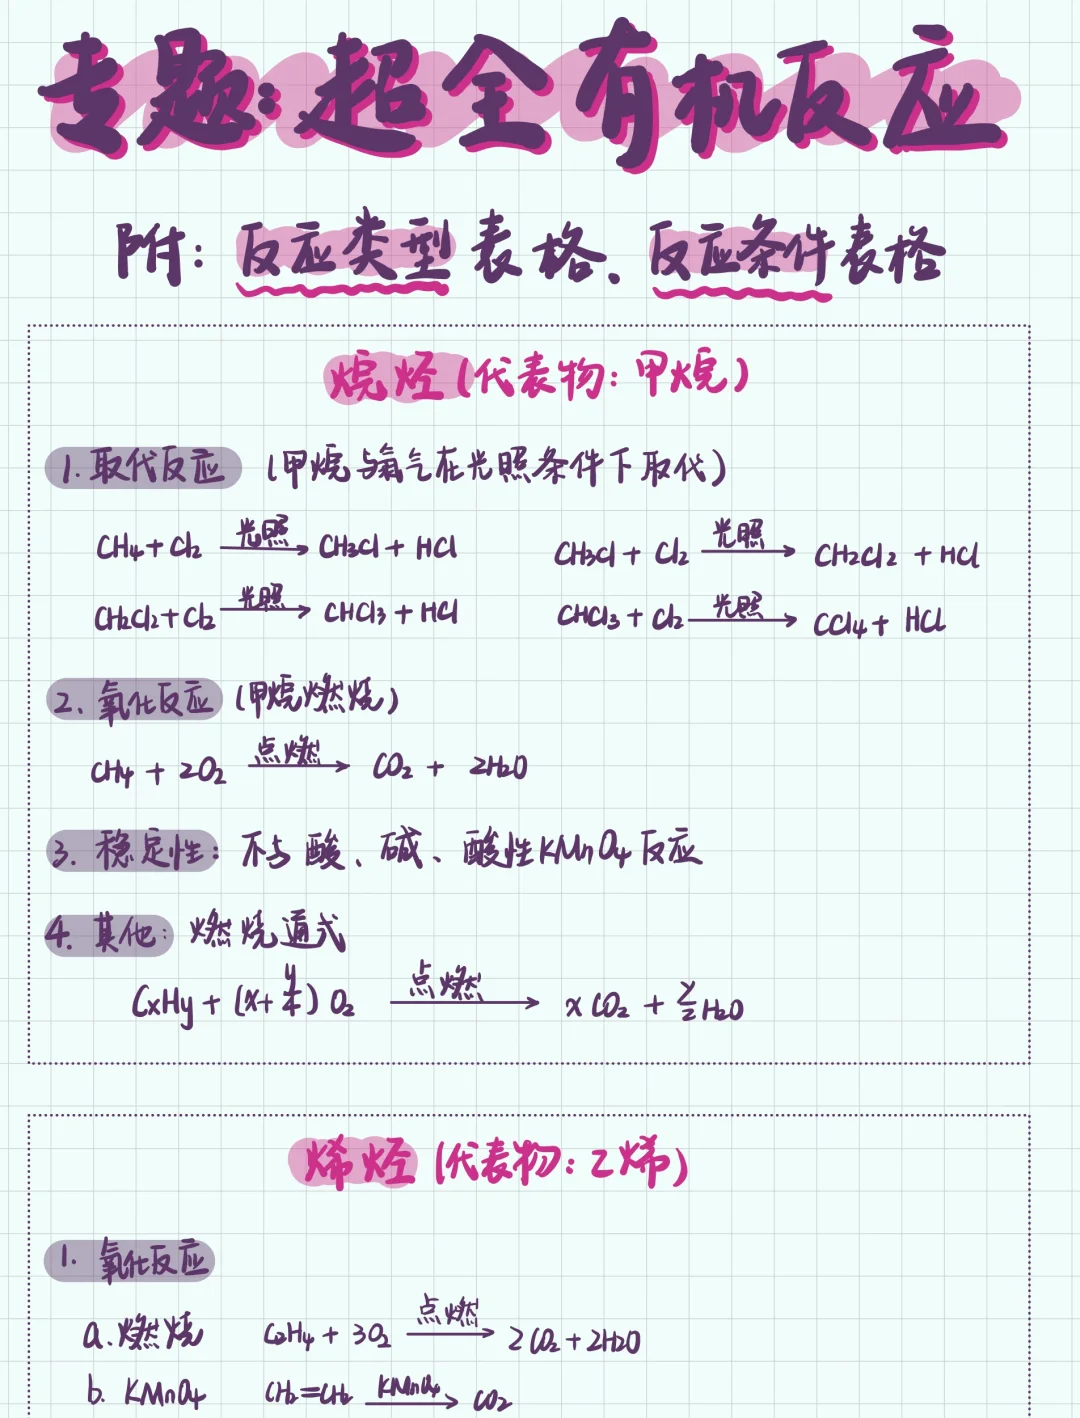 专题:超全有机反应
附:反应类型表格、反应条件表格
烷烃(代表物:甲烷)
1.取代反应 (甲烷与氯气在光照条件下取代)
CH4+Cl2 —光照→ CH3Cl+HCl CH3Cl+Cl2 —光照→ CH2Cl2+HCl
CH2Cl2+Cl2 —光照→ CHCl3+HCl CHCl3+Cl2 —光照→ CCl4+HCl
2、氧化反应 (甲烷燃烧)
CH4+2O2 —点燃→ CO2+2H2O
3.稳定性:不与酸、碱、酸性KMnO4反应
4.其他:燃烧通式
CxHy+(x+y/4)O2 —点燃→ xCO2+y/2H2O
烯烃(代表物:乙烯)
1.氧化反应
a.燃烧 C2H4+3O2 —点燃→ 2CO2+2H2O
b.KMnO4 CH2=CH2 —KMnO4→ CO2